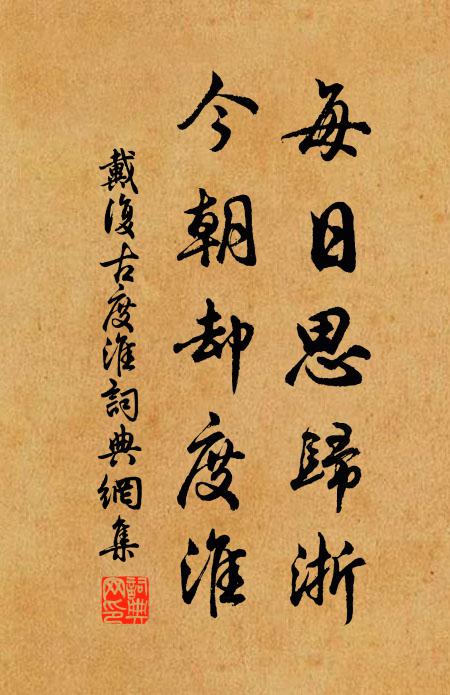 每日思歸浙
今朝却度淮
戴復古度淮詞典網集
詞典網印